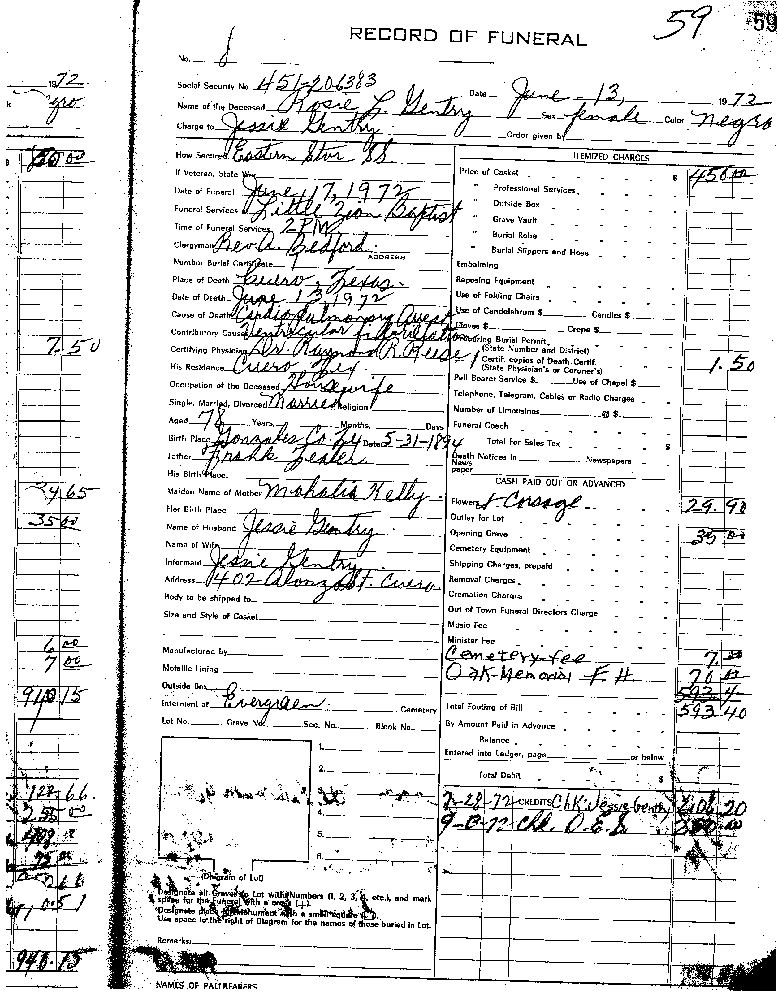 59
59
RECORD OF FUNERAL
No.
Social Security No. 451-206383
Date June 13, 1972
Name of the Deceased Rosie L. Gentry Sex female Color Negro
Charge to Jessie Gentry Order given by
How Secured Eastern Star SS
If Veteran, State War
Date of Funeral June 17, 1972
Funeral Services Little Zion Baptist
Time of Funeral Services 2 PM
Clergyman Rev. A. Bedford
ADDRESS
Number Burial Certificate
Place of Death Cuero, Texas
Date of Death June 13, 1972
Cause of Death Cardio Pulmonary Arrest
Contributory Cause Ventricular fibrillation
Certifying Physician Dr. Raymond R. Reese
His Residence Cuero Tex
Occupation of the Deceased Housewife
Single, Married, Divorced Married Religion
Aged 78 Years, Months, Days
Birth Place Gonzales Co. Date 5-31-1894
Father Frank
His Birth Place
Maiden Name of Mother Mahalia Kelly
Her Birth Place
Name of Husband Jessie Gentry
Name of Wife
Informant Jessie Gentry
Address 1402 Alonzo St. Cuero
Body to be shipped to
Size and Style of Casket
Manufactured by
Metallic Lining
Outside Box
Interment at Evergreen Cemetery
Lot No. Grave No. Sec. No. Block No.
1.
2.
4.
5.
6.
(Diagram of Lot)
Designate all Graves in Lot with Numbers (1, 2, 3, 4, etc.), and mark
space for the Funeral with a cross (+).
Designate place of Monument with a small square
Use space to the right of Diagram for the names of those buried in Lot.
Remarks:
NAMES OF PALLBEARERS
ITEMIZED CHARGES
Price of Casket $ 450 00
" Professional Services
" Outside Box
" Grave Vault
" Burial Robe
" Burial Slippers and Hose
Embalming
Reposing Equipment
Use of Folding Chairs
Use of Candelabrum $ Candles $
Gloves $ Crepe $
Burial Permit
(State Number and District)
1 Certif. copies of Death Certif.
(State Physician's or Coroner's) 1.50
Pall Bearer Service $ Use of Chapel $
Telephone, Telegram, Cables or Radio Charges
Number of Limousines @ $
Funeral Coach
Total for Sales Tax $
Death Notices in Newspapers
Newspaper
CASH PAID OUT OR ADVANCED
Flowers & Corsage 29.90
Outlay for Lot
Opening Grave 35 00
Cemetery Equipment
Shipping Charges, prepaid
Removal Charges
Cremation Charges
Out of Town Funeral Directors Charge
Music Fee
Minister Fee
Cemetery fee 7.00
Oak Memorial F. H. 70 00
Total Footing of Bill 593.40
By Amount Paid in Advance
Balance
Entered into Ledger, page or below
Total Debit $
CREDITS Chk. Jessie Gentry
Chk. O.E.S.
1972
7.50
35 00
6 00
7 00
910 15
940.15